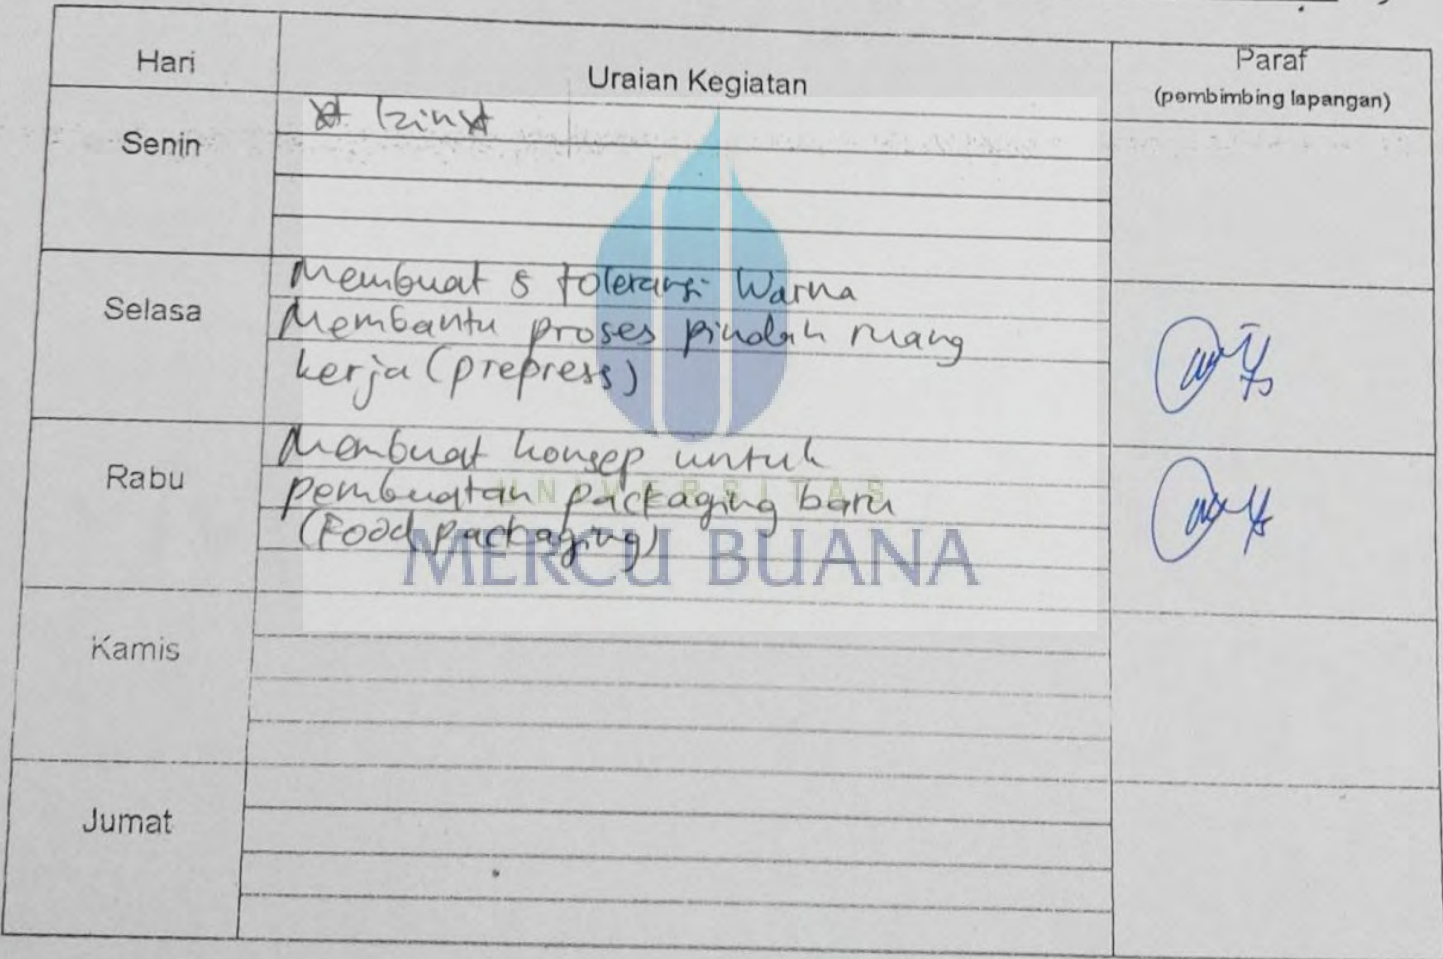 Hari
Uraian Kegiatan
Paraf
(pembimbing lapangan)
Senin
Izin
Selasa
Membuat 5 toleransi Warna
Membantu proses pindah ruang
kerja (prepress)
Rabu
Membuat konsep untuk
pembuatan packaging baru
(Food packaging)
UNIVERSITAS
MERCU BUANA
Kamis
Jumat